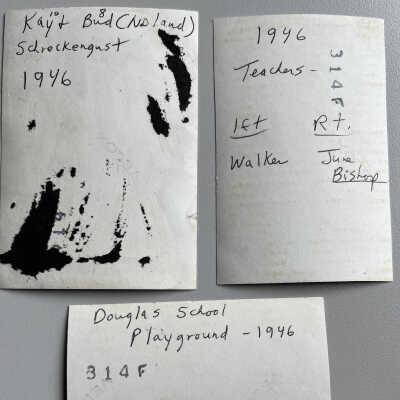 Kay & Bud (Noland)
Schreckengust
1946
1946
Teachers -
314F
lft Rt.
Walker June
Bishop
Douglas School
Playground - 1946
314F